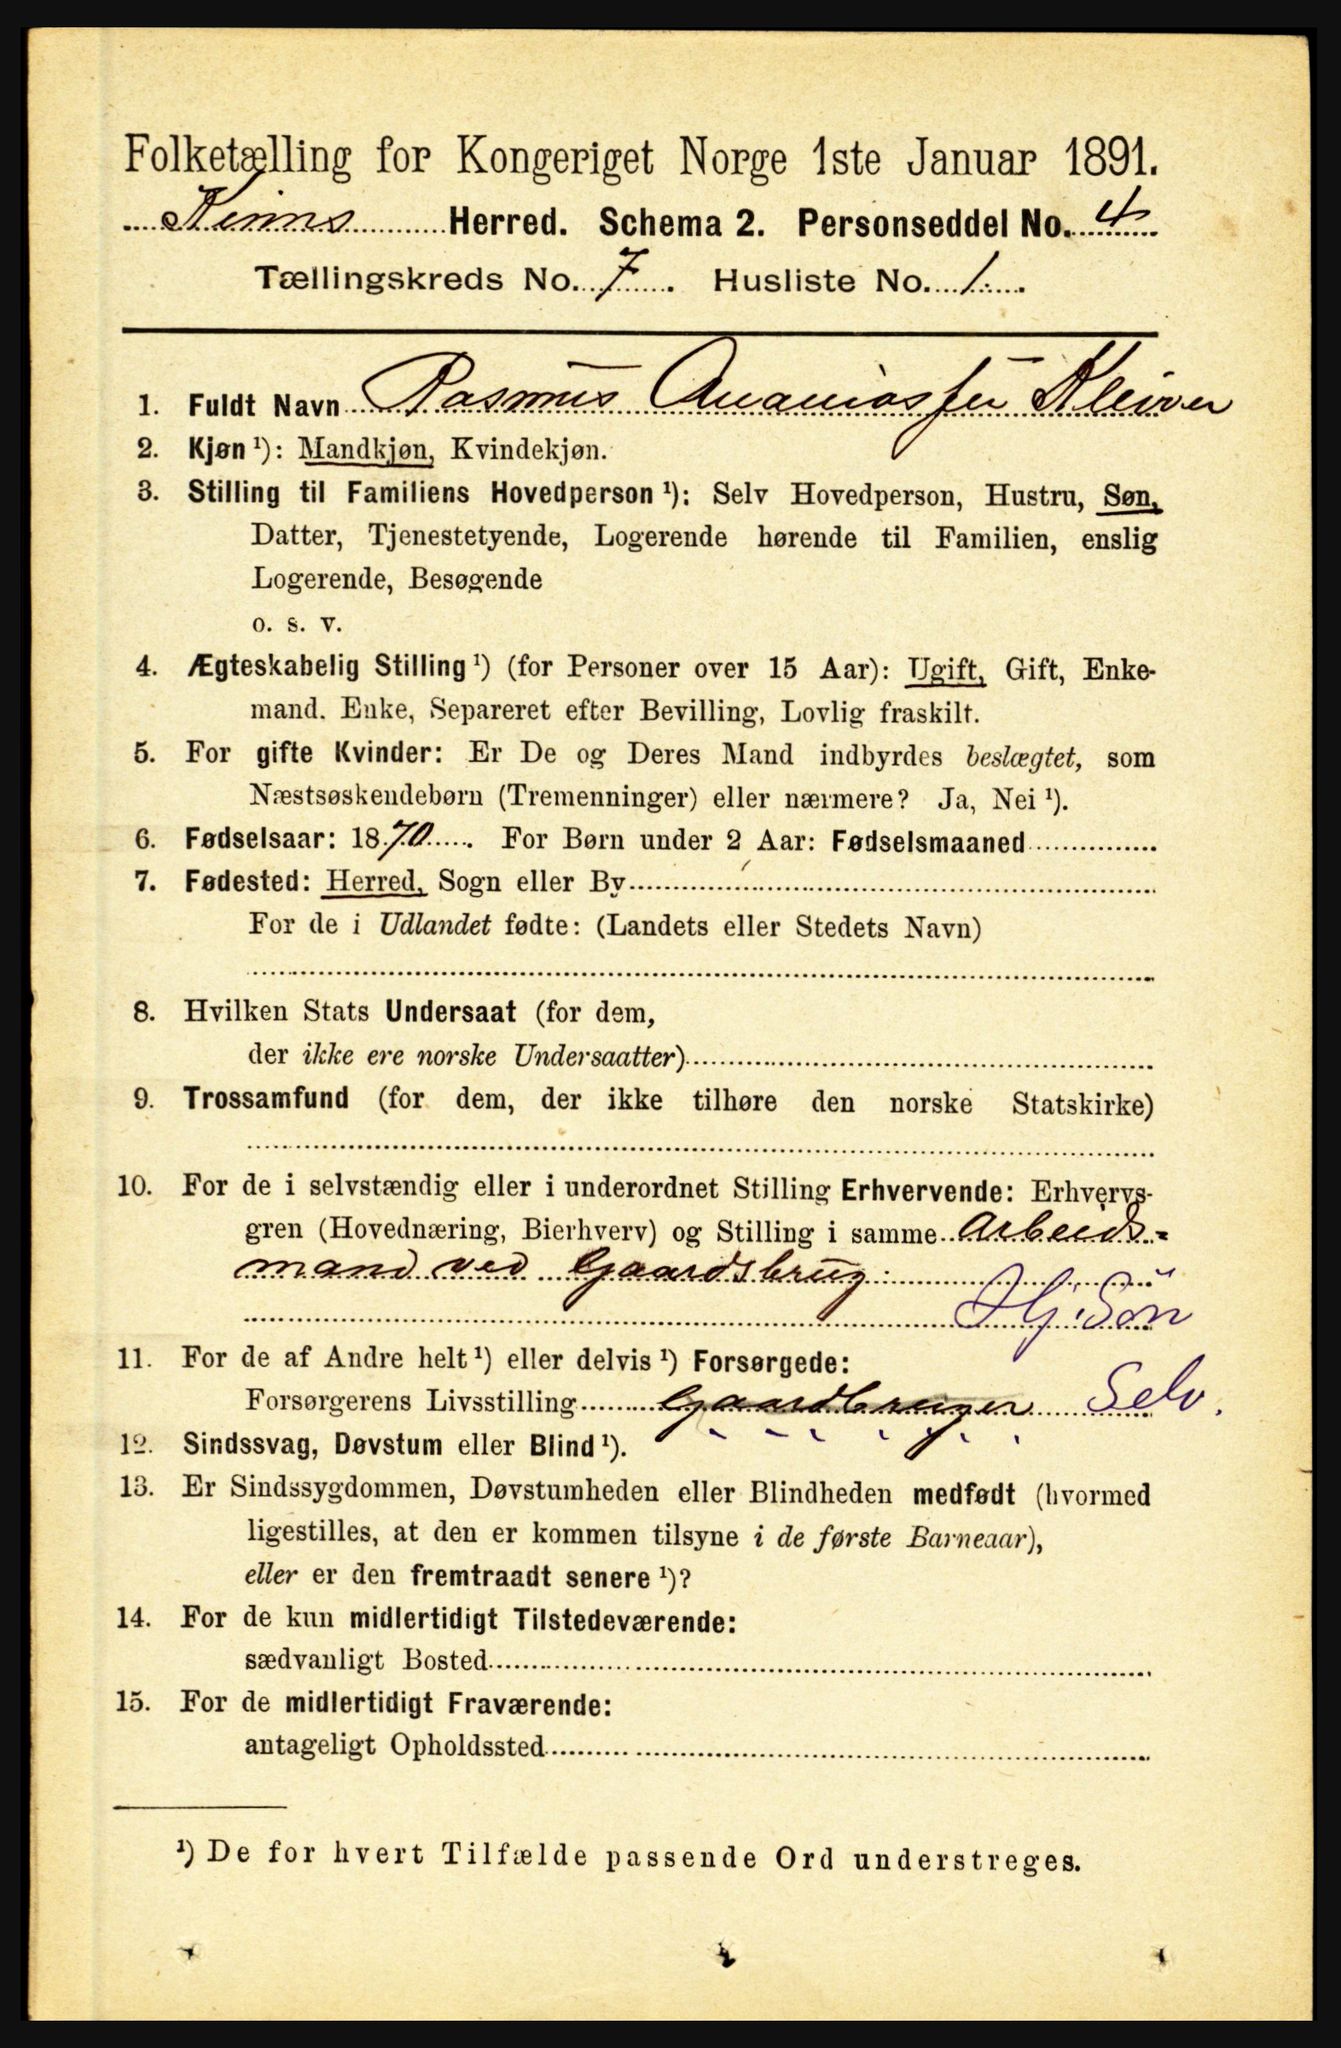 Folketælling for Kongeriget Norge 1ste Januar 1891.
Kinns Herred. Schema 2. Personseddel No. 4
Tællingskreds No. 7. Husliste No. 1.
1. Fuldt Navn Rasmus Ananiassen Kleiven
2. Kjøn ¹): Mandkjøn, Kvindekjøn.
3. Stilling til Familiens Hovedperson ¹): Selv Hovedperson, Hustru, Søn,
Datter, Tjenestetyende, Logerende hørende til Familien, enslig
Logerende, Besøgende
o. s. v.
4. Ægteskabelig Stilling ¹) (for Personer over 15 Aar): Ugift, Gift, Enke-
mand. Enke, Separeret efter Bevilling, Lovlig fraskilt.
5. For gifte Kvinder: Er De og Deres Mand indbyrdes beslægtet, som
Næstsøskendebørn (Tremenninger) eller nærmere? Ja, Nei ¹).
6. Fødselsaar: 1870. For Børn under 2 Aar: Fødselsmaaned
7. Fødested: Herred, Sogn eller By
For de i Udlandet fødte: (Landets eller Stedets Navn)
8. Hvilken Stats Undersaat (for dem,
der ikke ere norske Undersaatter)
9. Trossamfund (for dem, der ikke tilhøre den norske Statskirke)
10. For de i selvstændig eller i underordnet Stilling Erhvervende: Erhvervs-
gren (Hovednæring, Bierhverv) og Stilling i samme Arbeids-
mand ved Gaardsbrug.
Hj. Søn
11. For de af Andre helt ¹) eller delvis ¹) Forsørgede:
Forsørgerens Livsstilling Gaardbruger Selv.
12. Sindssvag, Døvstum eller Blind ¹).
13. Er Sindssygdommen, Døvstumheden eller Blindheden medfødt (hvormed
ligestilles, at den er kommen tilsyne i de første Barneaar),
eller er den fremtraadt senere ¹)?
14. For de kun midlertidigt Tilstedeværende:
sædvanligt Bosted
15. For de midlertidigt Fraværende:
antageligt Opholdssted
¹) De for hvert Tilfælde passende Ord understreges.